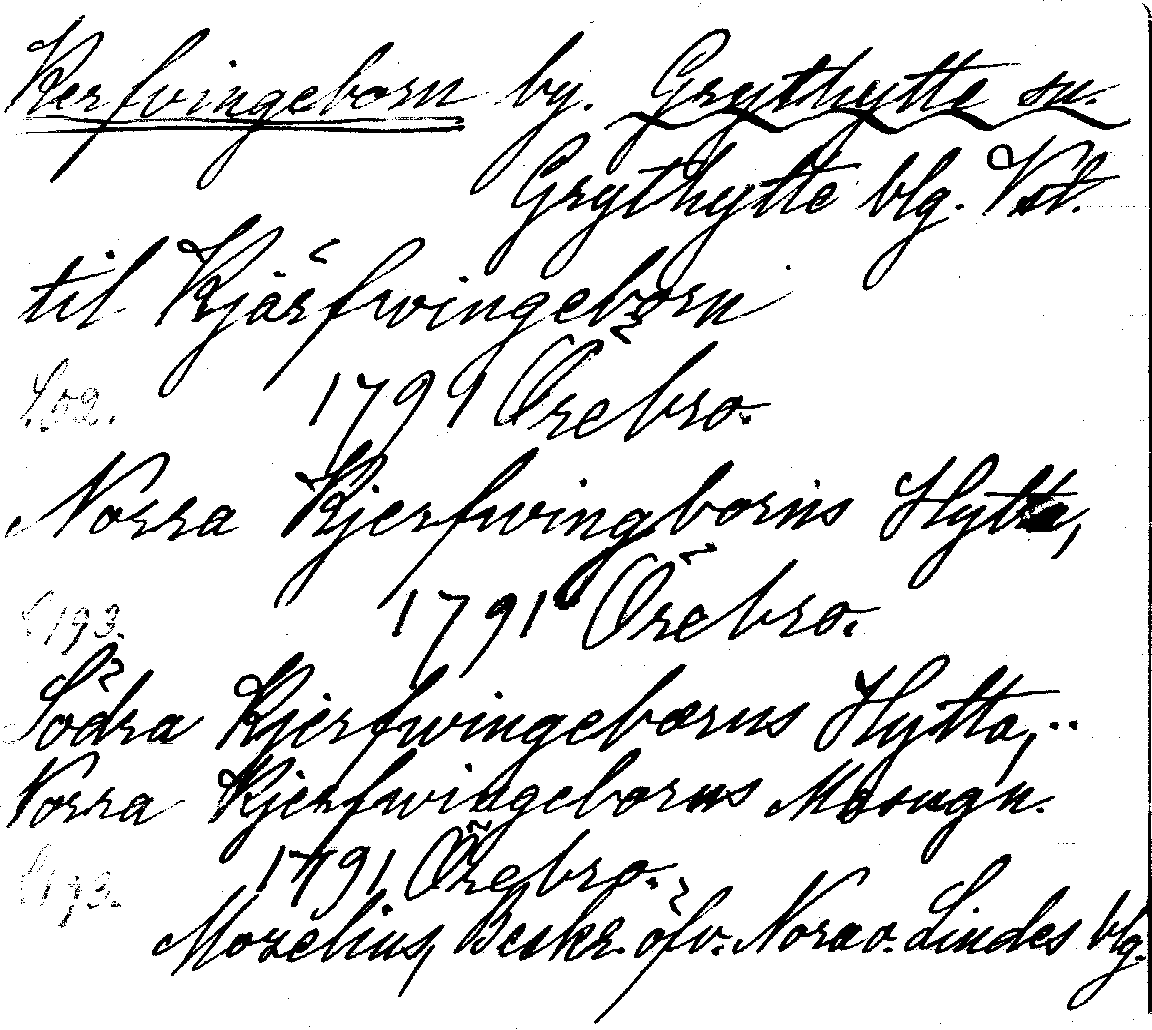 Kerfvingeborn by. Grythytte sn.
Grythytte blg. Vstl.
til Kjärfwingeborn
S. 92. 1799 Örebro.
Norra Kjerfwingborns Hytta,
S 193. 1791 Örebro.
Södra Kjerfwingeborns Hytta,..
Norra Kjerfwingeborns Masugn.
S 173. 1791 Örebro.
Morelius, Beskr. öfv. Nora o. Lindes blg.